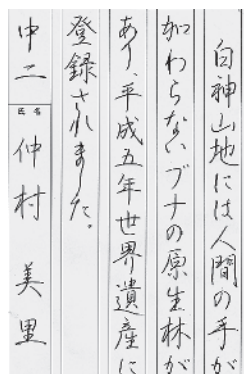 白神山地には人間の手が
加わらないブナの原生林が
あり、平成五年世界遺産に
登録されました。
中二
氏名
仲村 美里